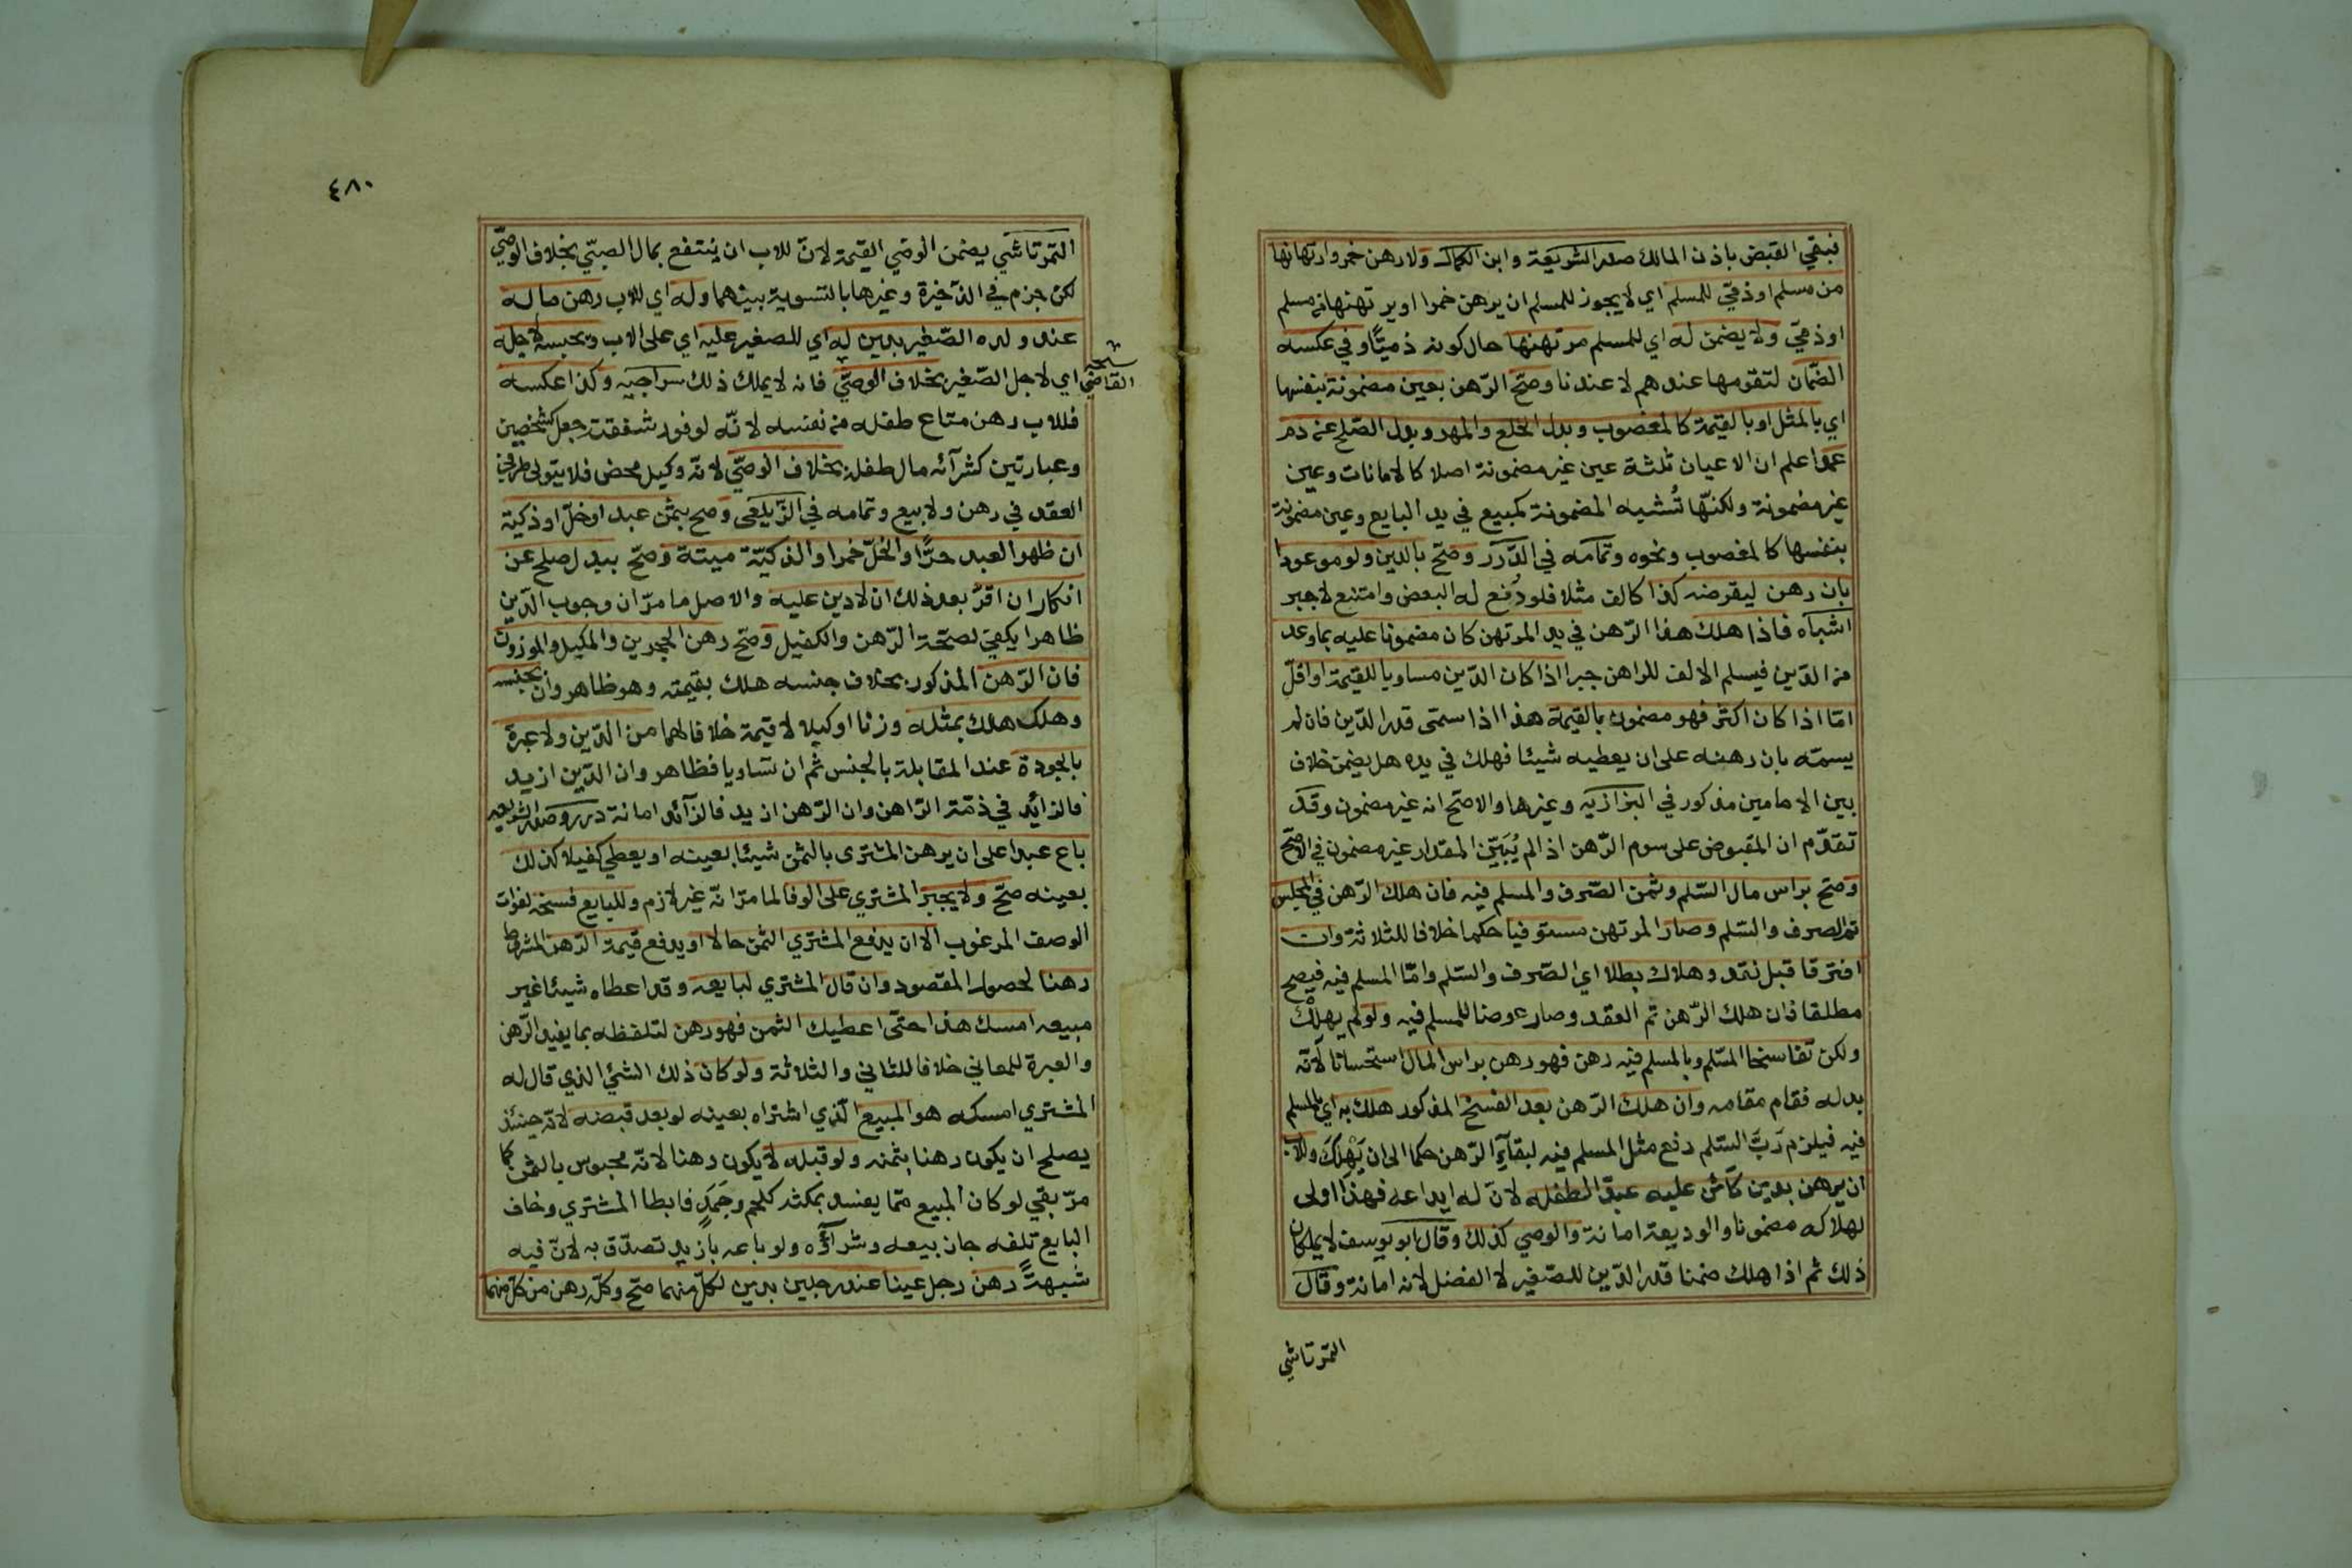 فبقي القبض باذن المالك صدر الشريعة وابن الكمال ولا رهن خمر وارتهانها
من مسلم او ذمي للمسلم اي لا يجوز للمسلم ان يرهن خمرا او يرتهنها من مسلم
او ذمي ولا يضمن له اي للمسلم مرتهنها حال كونه ذميًّا وفي عكسه
الضمان لتقومها عندهم لا عندنا وصحّ الرّهن بعين مضمونة بنفسها
اي بالمثل او بالقيمة كالمغصوب وبدل الخلع والمهر وبدل الصّلح عن دم
عمد اعلم ان الاعيان ثلثة عين غير مضمونة اصلا كالامانات وعين
غير مضمونة ولكنّها تُشبه المضمونة كمبيع في يد البايع وعين مضمونة
بنفسها كالمغصوب ونحوه وتمامه في الدّرر وصحّ بالدين ولو موعودا
بان رهن ليقرضه كذا كالف مثلا فلو دُفع له البعض وامتنع لا جبر
اشباه فاذا هلك هذا الرّهن في يد المرتهن كان مضمونا عليه بما وعد
من الدّين فيسلم الالف للراهن جبرا اذا كان الدّين مساويا للقيمة او اقلّ
امّا اذا كان اكثر فهو مضمون بالقيمة هذا اذا سمّى قدر الدّين فان لم
يسمّه بان رهنه على ان يعطيه شيئا فهلك في يده هل يضمن خلاف
بين الامامين مذكور في البزازيه وغيرها والاصحّ انه غير مضمون وقد
تقدّم ان المقبوض على سوم الرّهن اذا لم يُبَيّن المقدار غير مضمون في الاصحّ
وصحّ براس مال السّلم وثمن الصّرف والمسلم فيه فان هلك الرّهن في المجلس
تم الصرف والسّلم وصار المرتهن مستوفيا حكما خلافا للثلاثة وان
افترقا قبل نقد وهلاك بطلا اي الصّرف والسّلم وامّا المسلم فيه فيصح
مطلقا فان هلك الرّهن تم العقد وصار عوضا للمسلم فيه ولو لم يهلك
ولكن تفاسخا السّلم وبالمسلم فيه رهن فهو رهن براس المال استحسانا لانّه
بدله فقام مقامه وان هلك الرّهن بعد الفسخ المذكور هلك به اي بالمسلم
فيه فيلزم رَبَّ السّلم دفع مثل المسلم فيه لبقآءِ الرّهن حكما الى ان يَهْلكَ وللاب
ان يرهن بدين كآئن عليه عبدًا لطفله لانّ له ايداعه فهذا اولى
لهلاكه مضمونا والوديعة امانة والوصي كذلك وقال ابو يوسف لا يملكان
ذلك ثم اذا هلك ضمنا قدر الدّين للصّغير لا الفضل لانه امانة وقال
التمرتاشي
٤٨٠
التمرتاشي يضمن الوصي القيمة لانّ للاب ان ينتفع بمال الصبيّ بخلاف الوصيّ
لكن جزم في الذّخيرة وغيرها بالتسوية بينهما وله اي للاب رهن ماله
عند ولده الصّغير بدين له اي للصغير عليه اي على الاب ويحبسه لاجله
اي لاجل الصّغير بخلاف الوصيّ فانه لا يملك ذلك سراجيه وكذا عكسه
القاضي
فللاب رهن متاع طفله من نفسه لانّه لوفور شفقته جعل كشخصين
وعبارتين كشرآئه مال طفله بخلاف الوصيّ لانّه وكيل محض فلا يتولى طرفي
العقد في رهن ولا بيع وتمامه في الزّيلعى وصح بثمن عبد او خلّ او ذكية
ان ظهر العبد حرًّا والخلّ خمرا والذكيّة ميتة وصحّ ببدل صلح عن
انكار ان اقرّ بعد ذلك ان لا دين عليه والاصل ما مرّ ان وجوب الدّين
ظاهرا يكفي لصحّة الرّهن والكفيل وصحّ رهن الحجرين والمكيل والموزون
فان الرّهن المذكور بخلاف جنسه هلك بقيمته وهو ظاهر وان بجنسه
وهلك هلك بمثله وزنا او كيلا لا قيمة خلافا لهما من الدّين ولا عبرة
بالجودة عند المقابلة بالجنس ثم ان تساويا فظاهر وان الدّين ازيد
فالزائد في ذمّة الرّاهن وان الرّهن ازيد فالزآئد امانة درر وصدر الشريعه
باع عبدا على ان يرهن المشترى بالثمن شيئا بعينه او يعطي كفيلا كذلك
بعينه صحّ ولا يجبر المشتري على الوفا لما مرّ انّه غير لازم وللبايع فسخه لفوات
الوصف المرغوب الا ان يدفع المشتري الثمن حالا او يدفع قيمة الرّهن المشروط
رهنا لحصول المقصود وان قال المشتري لبايعه وقد اعطاه شيئا غير
مبيعه امسك هذا حتّى اعطيك الثمن فهو رهن لتلفظه بما يفيد الرّهن
والعبرة للمعاني خلافا للثاني والثلاثة ولو كان ذلك الشيء الذي قال له
المشتري امسكه هو المبيع الّذي اشتراه بعينه لو بعد قبضه لانّه حينئذ
يصلح ان يكون رهنا بثمنه ولو قبله لا يكون رهنا لانّه محبوس بالثمن كما
مرّ بقي لو كان المبيع ممّا يفسد بمكثه كلحم وجَمَدٍ فابطا المشتري وخاف
البايع تلفه جاز بيعه وشرآؤه ولو باعه بازيد تصدّق به لانّ فيه
شبهةً رهن رجل عينا عند رجلين بدين لكلّ منهما صحّ وكلّه رهن من كلّ منهما